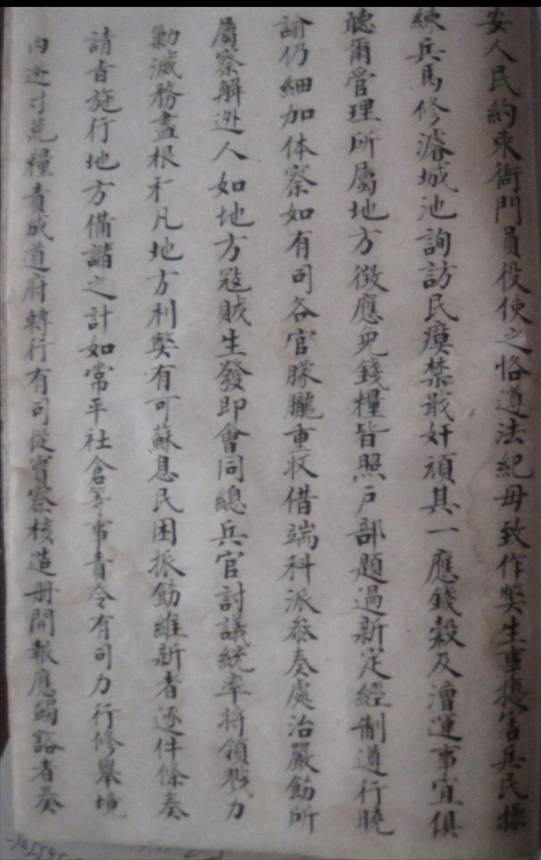 安人民約束衙門員役使之恪遵法紀毋致作獘生事擾害兵民操
練兵馬修濬城池詢訪民瘼禁戢奸頑其一應錢穀及漕運事宜俱
聽爾管理所屬地方徵應免錢糧皆照戶部題過新定經制遵行曉
諭仍細加体察如有司各官朦朧重收借端科派叅奏處治嚴飭所
屬察緝逃人如地方冦賊生發即會同總兵官討議統率將領戮力
勦滅務盡根利凡地方利獘有可蘇息民困振飭維新者逐件條奏
請旨施行地方備諧之計如常平社倉等事責令有司力行修舉境
内逃丁荒糧責成道府轉行有司從實察核造册開報應蠲豁者奏